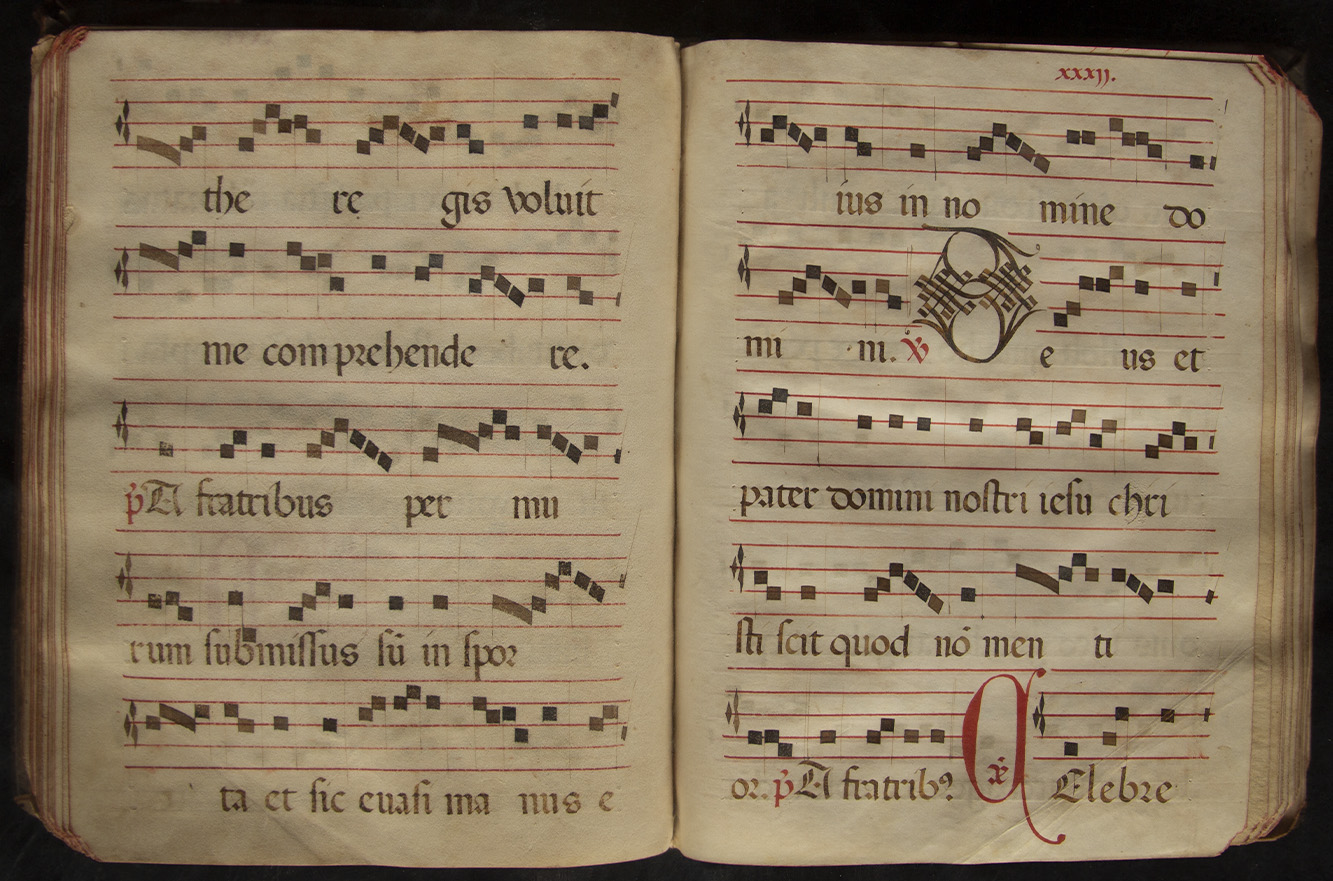 the re gis voluit
me comprehende re.
p̄ A fratribus per mu
rum submissus sū in spor
ta et sic euasi ma nus e
xxxij.
ius in no mine do
mi ni. ℣ De us et
pater domini nostri iesu chri
sti scit quod nō men ti
or. p̄ A fratribꝰ Celebre